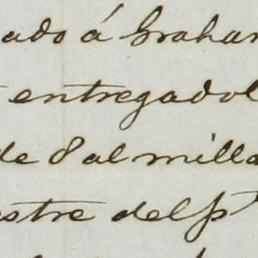 ado á Graham
entregadol
de 8 al milla
estre del p.